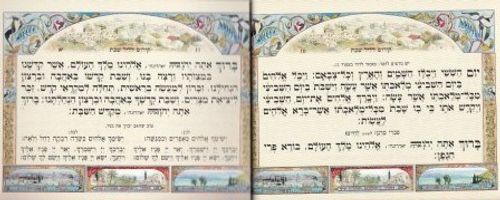 קידוש לליל שבת
יום הששי ויכלו השמים והארץ וכל צבאם: ויכל אלהים
ביום השביעי מלאכתו אשר עשה וישבת ביום השביעי
מכל מלאכתו אשר עשה: ויברך אלהים את יום השביעי
ויקדש אתו כי בו שבת מכל מלאכתו אשר ברא אלהים
לעשות:
סברי מרנן
ברוך אתה יהוה אלהינו מלך העולם, בורא פרי
הגפן:
קידוש לליל שבת
ברוך אתה יהוה אלהינו מלך העולם, אשר קדשנו
במצותיו ורצה בנו, ושבת קדשו באהבה וברצון
הנחילנו, זכרון למעשה בראשית, תחלה למקראי קדש, זכר
ליציאת מצרים. ושבת קדשך באהבה וברצון הנחלתנו. ברוך
אתה יהוה מקדש השבת:
ישימך אלהים כאפרים וכמנשה: ישימך אלהים כשרה רבקה רחל ולאה: